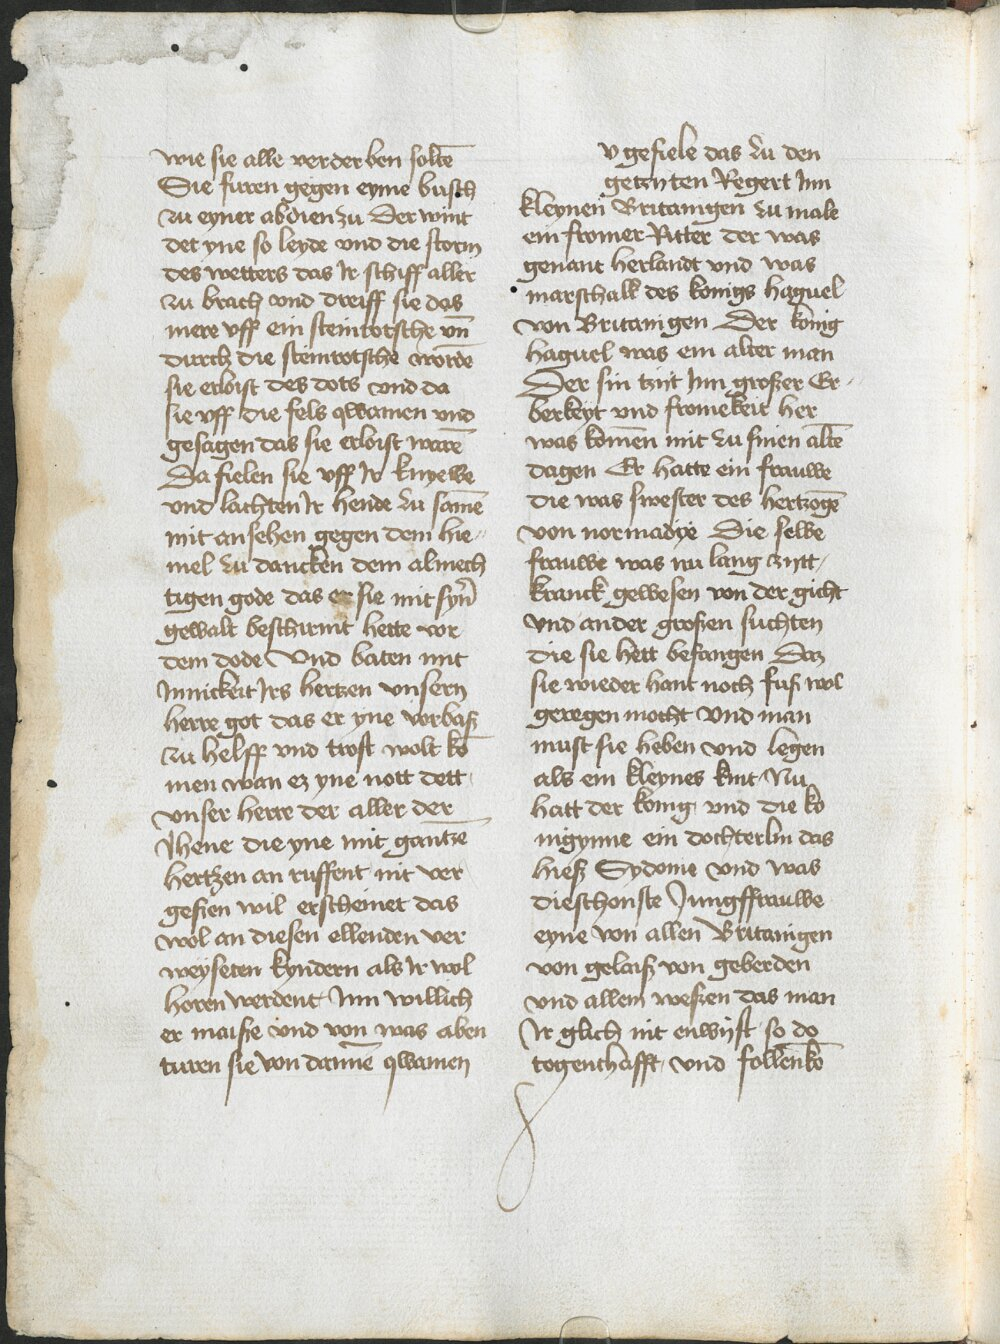 wie sie alle verderben solte̅
Sie furen gegen eyme busch
zu eyner abdien zu Der wint
det yne so leyde vnd die storm
des wetters das Ir schiff aller
zu brach vnd dreiff sie das
mere vff ein steinrotsche vn̅
durch die steinrotsche worde̅
sie erloist des dots vnd da
sie vff die fels qwamen vnd
gesagen das sie erloist ware̅
Da fielen sie vff Ir knyewe
vnd lachten Ir hende zu same̅
mit an sehen gegen dem hie-
mel zu dancken dem almech
tigen gode das er sie mit syn̅
gewalt beschirmt hette vor
dem dode Vnd baten mit
Innickeit Irs hertzen vnsern
herre got das er yne vorbaß
zu helff vnd trost wolt ko̅
men wan ez yne nott dett
vnser herre der aller der
Jhene die yne mit gantze̅
hertzen an ruffent nit ver
geßen wil erscheinet das
wol an diesen ellenden ver
weyseten kyndern als Ir wol
horen werdent Inn willich
er maiße vnd von was aben
turen sie von danne̅ qwamen
v gefiele das zu den
getzyten Regert Inn
kleynen Britanigen zu male
ein fromer Ritter der was
genant herlandt vnd was
marschalk des konigs haguel
von Britanigen Der konig
haguel was ein alter man
Der sin tzijt Inn großer Er-
berkeyt vnd fromekeit her
was kome̅n mit zu sinen alte̅
dagen Er hatte ein frauwe
die was swester des hertzoge̅
von normadye Die selbe
frauwe was nu lang zytt
kranck gewesen von der gicht
vnd ander großen suchten
die sie hett befangen Daz
sie wieder hant noch fuß wol
geregen mocht Vnd man
must sie heben vnd legen
als ein kleynes kint Nu
hatt der konig vnd die ko
nigynne ein dochterlin das
hieß Sydonie vnd was
die schonste Jungffrauwe
eyne von allen Britanigen
von gelaiß von geberden
vnd allem weßen das man
Ir glich nit enwijst so do
togenthafft vnd follenko̅